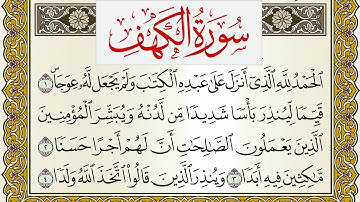 سورة الكهف
ٱلْحَمْدُ لِلَّهِ ٱلَّذِىٓ أَنزَلَ عَلَىٰ عَبْدِهِ ٱلْكِتَٰبَ وَلَمْ يَجْعَل لَّهُۥ عِوَجَاۜ ١
قَيِّمًا لِّيُنذِرَ بَأْسًا شَدِيدًا مِّن لَّدُنْهُ وَيُبَشِّرَ ٱلْمُؤْمِنِينَ
ٱلَّذِينَ يَعْمَلُونَ ٱلصَّٰلِحَٰتِ أَنَّ لَهُمْ أَجْرًا حَسَنًا ٢
مَّٰكِثِينَ فِيهِ أَبَدًا ٣ وَيُنذِرَ ٱلَّذِينَ قَالُوا۟ ٱتَّخَذَ ٱللَّهُ وَلَدًا ٤